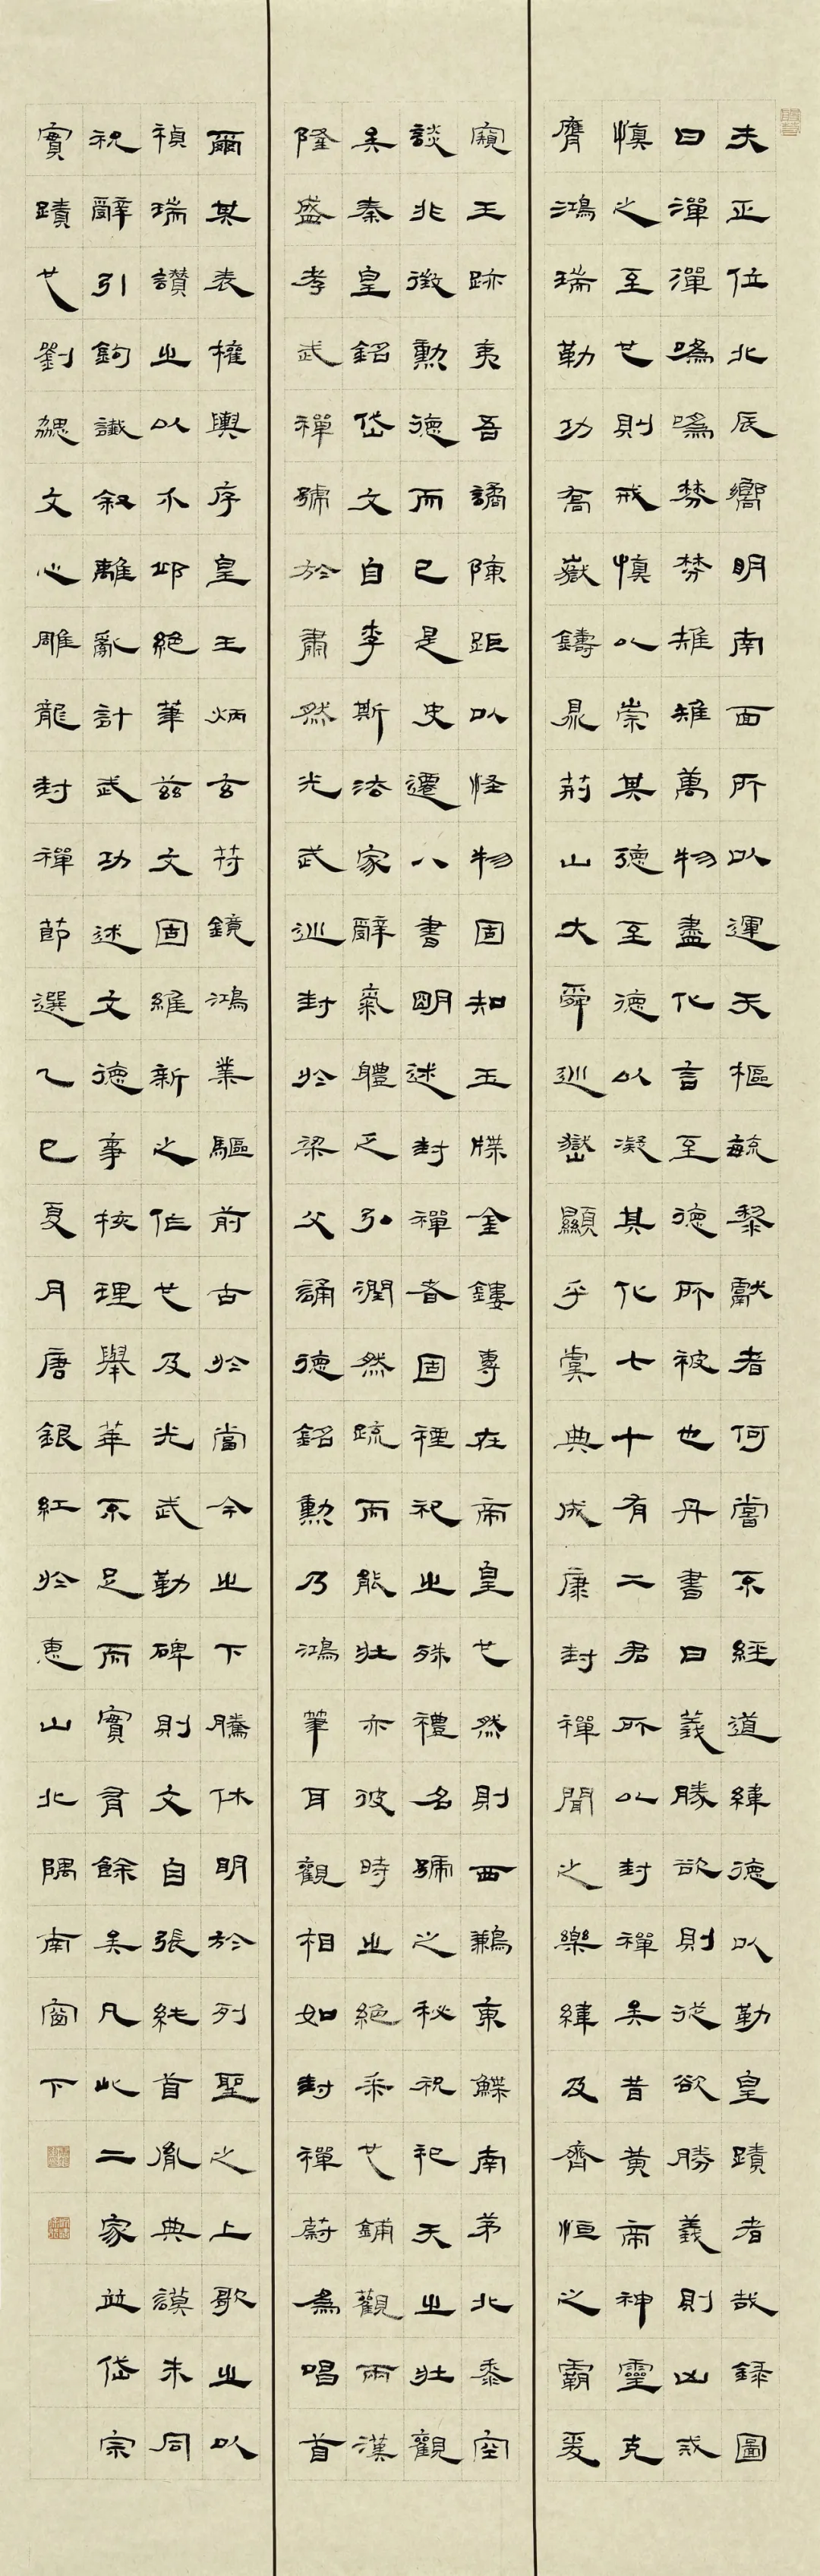 夫正位北辰嚮明南面所以運天樞毓黎獻者何嘗不經道緯德以勒皇蹟者哉錄圖
曰潬潬噅噅棼棼雉雉萬物盡化言至德所被也丹書曰義勝欲則從欲勝義則凶戒
慎之至也則戒慎以崇其德至德以凝其化七十有二君所以封禪矣昔黃帝神靈克
膺鴻瑞勒功喬嶽鑄鼎荊山大舜巡嶽顯乎虞典成康封禪聞之樂緯及齊恒之霸爰
窺王跡夷吾譎陳距以怪物固知玉牒金鏤專在帝皇也然則西鶼東鰈南茅北黍空
談非徵勳德而已是史遷八書明述封禪者固禋祀之殊禮名號之秘祝祀天之壯觀
矣秦皇銘岱文自李斯法家辭氣體乏弘潤然疏而能壯亦彼時之絕采也鋪觀兩漢
隆盛孝武禪號於肅然光武巡封於梁父誦德銘勳乃鴻筆耳觀相如封禪蔚為唱首
爾其表權輿序皇王炳玄符鏡鴻業驅前古於當今之下騰休明於列聖之上歌之以
禎瑞讚之以介邱絕筆茲文固維新之作也及光武勒碑則文自張純首胤典謨末同
祝辭引鉤讖叙離亂計武功述文德事核理舉華不足而實有餘矣凡此二家並岱宗
實蹟也劉勰文心雕龍封禪節選乙巳夏月唐銀紅於惠山北隅南窗下